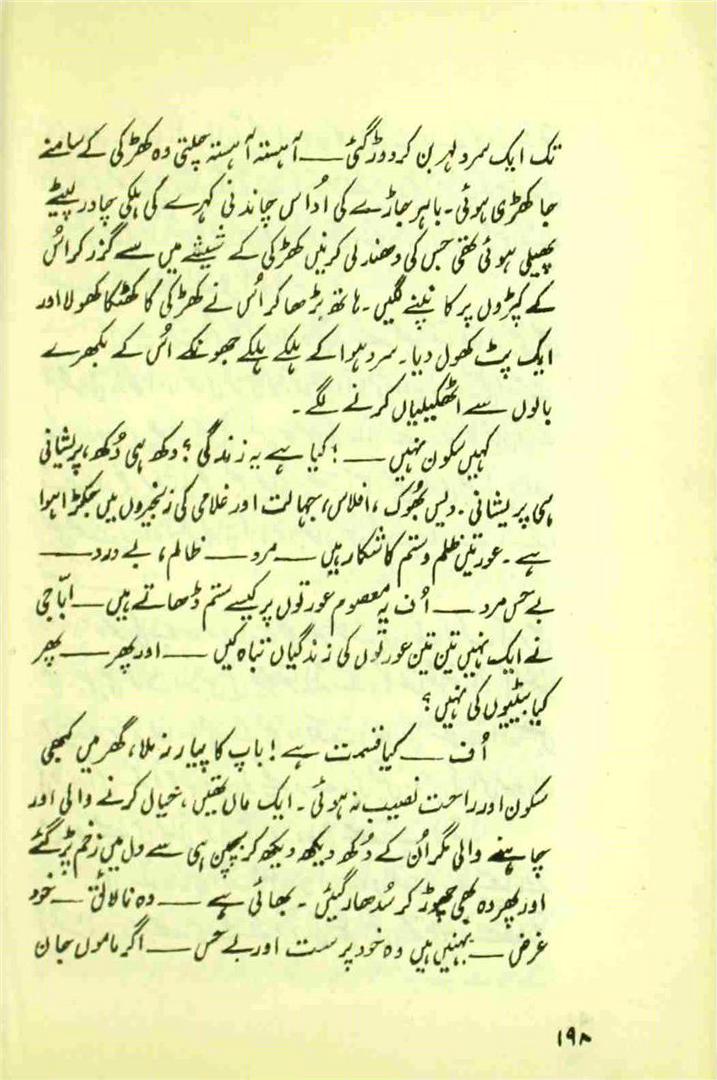 تک ایک سرد لہر بن کر دوڑ گئی — آہستہ آہستہ چلتی وہ کھڑکی کے سامنے
جا کھڑی ہوئی۔ باہر جاڑے کی اُداس چاندنی کہرے کی ہلکی چادر لپیٹے
پھیلی ہوئی تھی جس کی دھندلی کرنیں کھڑکی کے شیشے میں سے گزر کر اُس
کے کپڑوں پر کانپنے لگیں۔ ہاتھ بڑھا کر اُس نے کھڑکی کا کھٹکا کھولا اور
ایک پٹ کھول دیا۔ سرد ہوا کے ہلکے ہلکے جھونکے اُس کے بکھرے
بالوں سے اٹھکیلیاں کرنے لگے۔
کہیں سکون نہیں —! کیا ہے یہ زندگی؟ دکھ ہی دُکھ، پریشانی
ہی پریشانی۔ دیس بھُوک، افلاس، جہالت اور غلامی کی زنجیروں میں جکڑا ہوا
ہے۔ عورتیں ظلم و ستم کا شکار ہیں — مرد — ظالم، بے درد —
بے حس مرد — اُف یہ معصوم عورتوں پر کیسے ستم ڈھاتے ہیں — ابّا جی
نے ایک نہیں تین تین عورتوں کی زندگیاں تباہ کیں — اور پھر — پھر
کیا بیٹیوں کی نہیں؟
اُف — کیا قسمت ہے! باپ کا پیار نہ ملا، گھر میں کبھی
سکون اور راحت نصیب نہ ہوئی۔ ایک ماں تھیں، خیال کرنے والی اور
چاہنے والی مگر اُن کے دُکھ دیکھ دیکھ کر بچپن ہی سے دل میں زخم پڑ گئے
اور پھر وہ بھی چھوڑ کر سُدھار گئیں۔ بھائی ہے — وہ نالائق — خود
غرض — بہنیں ہیں وہ خود پرست اور بے حس — اگر ماموں جان
۱۹۸